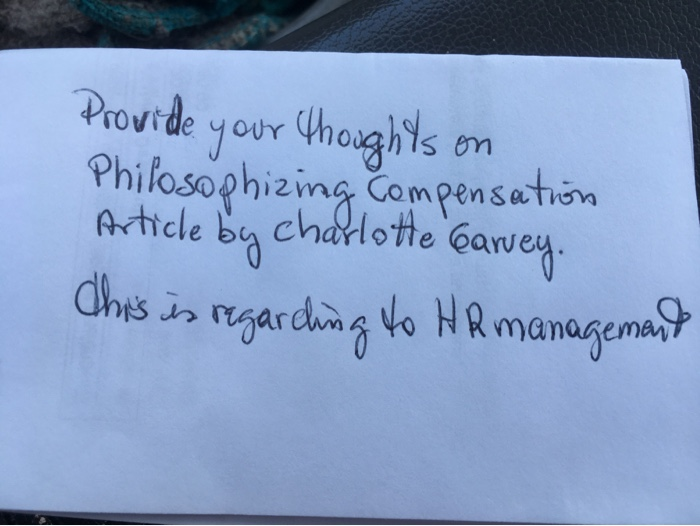 Provide your thoughts on
Philosophizing Compensation
Article by Charlotte Garvey.
This is regarding to HR management